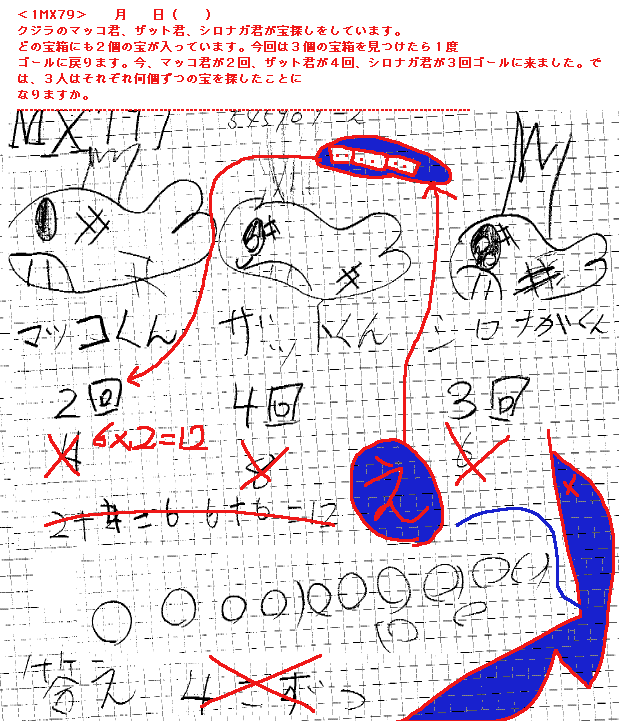 ＜1MX79＞　　月　　日（　　）
クジラのマッコ君、ザット君、シロナガ君が宝探しをしています。
どの宝箱にも２個の宝が入っています。今回は３個の宝箱を見つけたら１度
ゴールに戻ります。今、マッコ君が２回、ザット君が４回、シロナガ君が３回ゴールに来ました。で
は、３人はそれぞれ何個ずつの宝を探したことに
なりますか。
マッコくん ザットくん シロナガくん
2回 4回 3回
4 6×2=12 8 6
2+4=6 6+6=12
答え 4こずつ